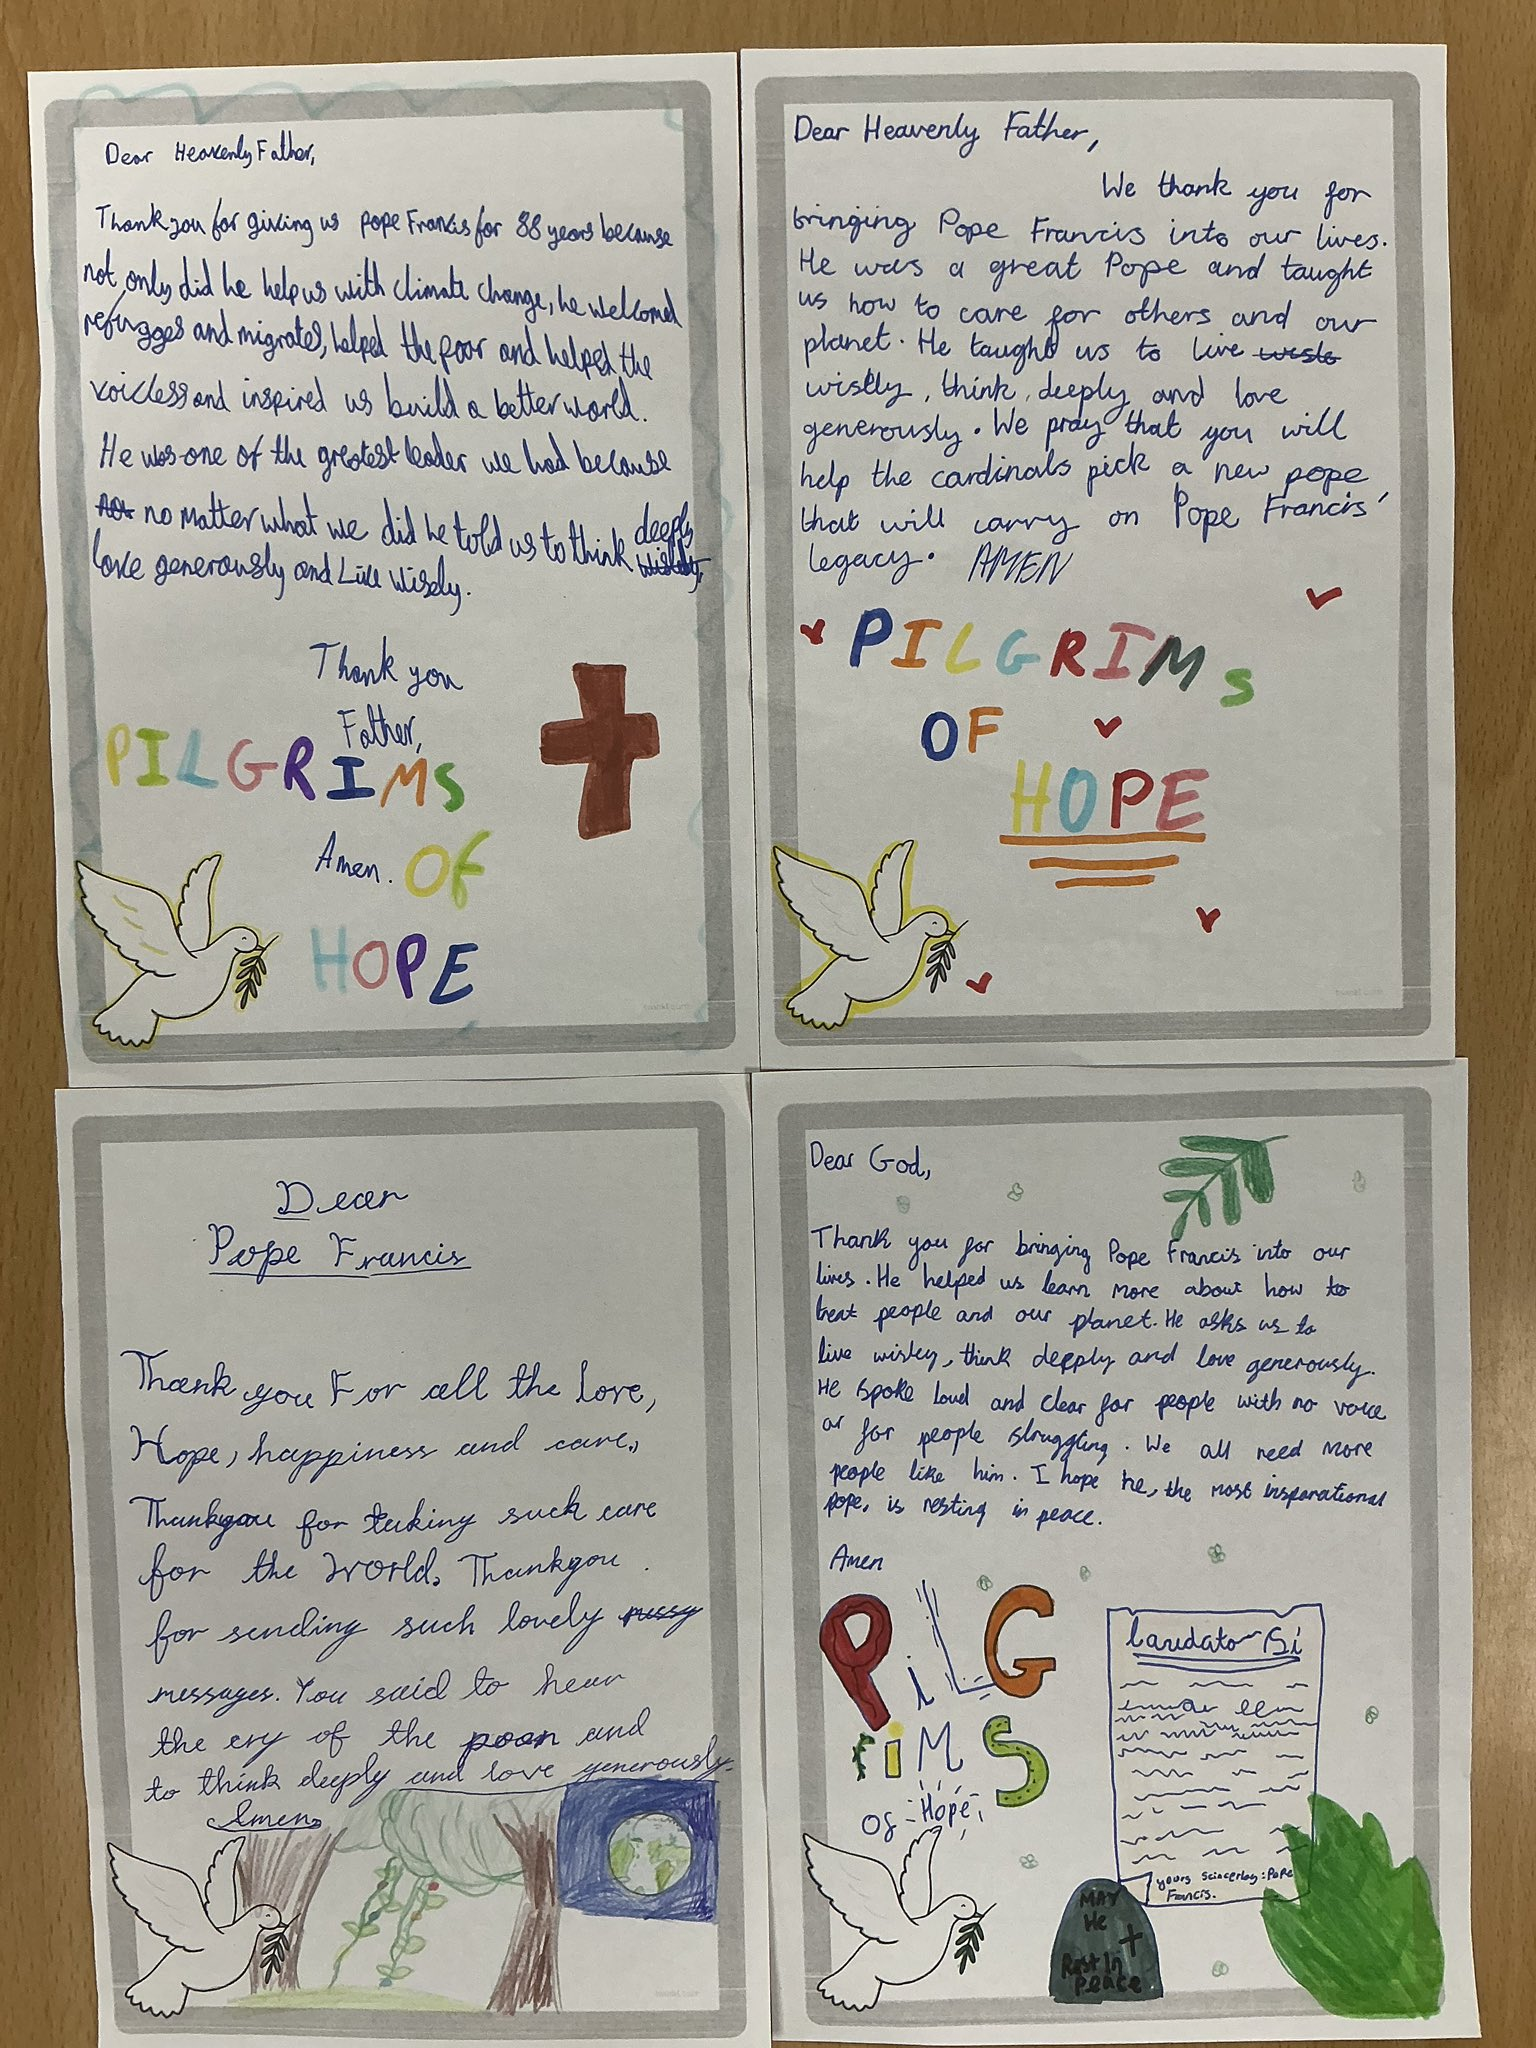 Dear Heavenly Father,
Thank you for giving us Pope Francis for 88 years because
not only did he help us with climate change, he welcomed
refugges and migrates, helped the poor and helped the
voicless and inspired us build a better world.
He was one of the greatest leader we had because
no matter what we did he told us to think deeply
love generously and Live wisely.
Thank you
Father,
PILGRIMS
Amen. OF
HOPE
Dear Heavenly Father,
We thank you for
bringing Pope Francis into our lives.
He was a great Pope and taught
us how to care for others and our
planet. He taught us to live
wistly, think, deeply and love
generously. We pray that you will
help the cardinals pick a new pope
that will carry on Pope Francis'
legacy. AMEN
PILGRIMS
OF
HOPE
Dear
Pope Francis
Thank you For all the love,
Hope, happiness and care,
Thankyou for taking such care
for the world. Thankyou
for sending such lovely
messages. You said to hear
the cry of the poor and
to think deeply and love generously.
Amen
Dear God,
Thank you for bringing Pope Francis into our
lives. He helped us learn more about how to
treat people and our planet. He asks us to
live wisley, think depply and love generously.
He spoke loud and clear for people with no voice
or for people struggling. We all need more
people like him. I hope he, the most insparational
pope, is resting in peace.
Amen
PiLG
riMS
Of Hope
laudato Si
yours sincerley: Pope
Francis.
MAY
He
Rest In
peace